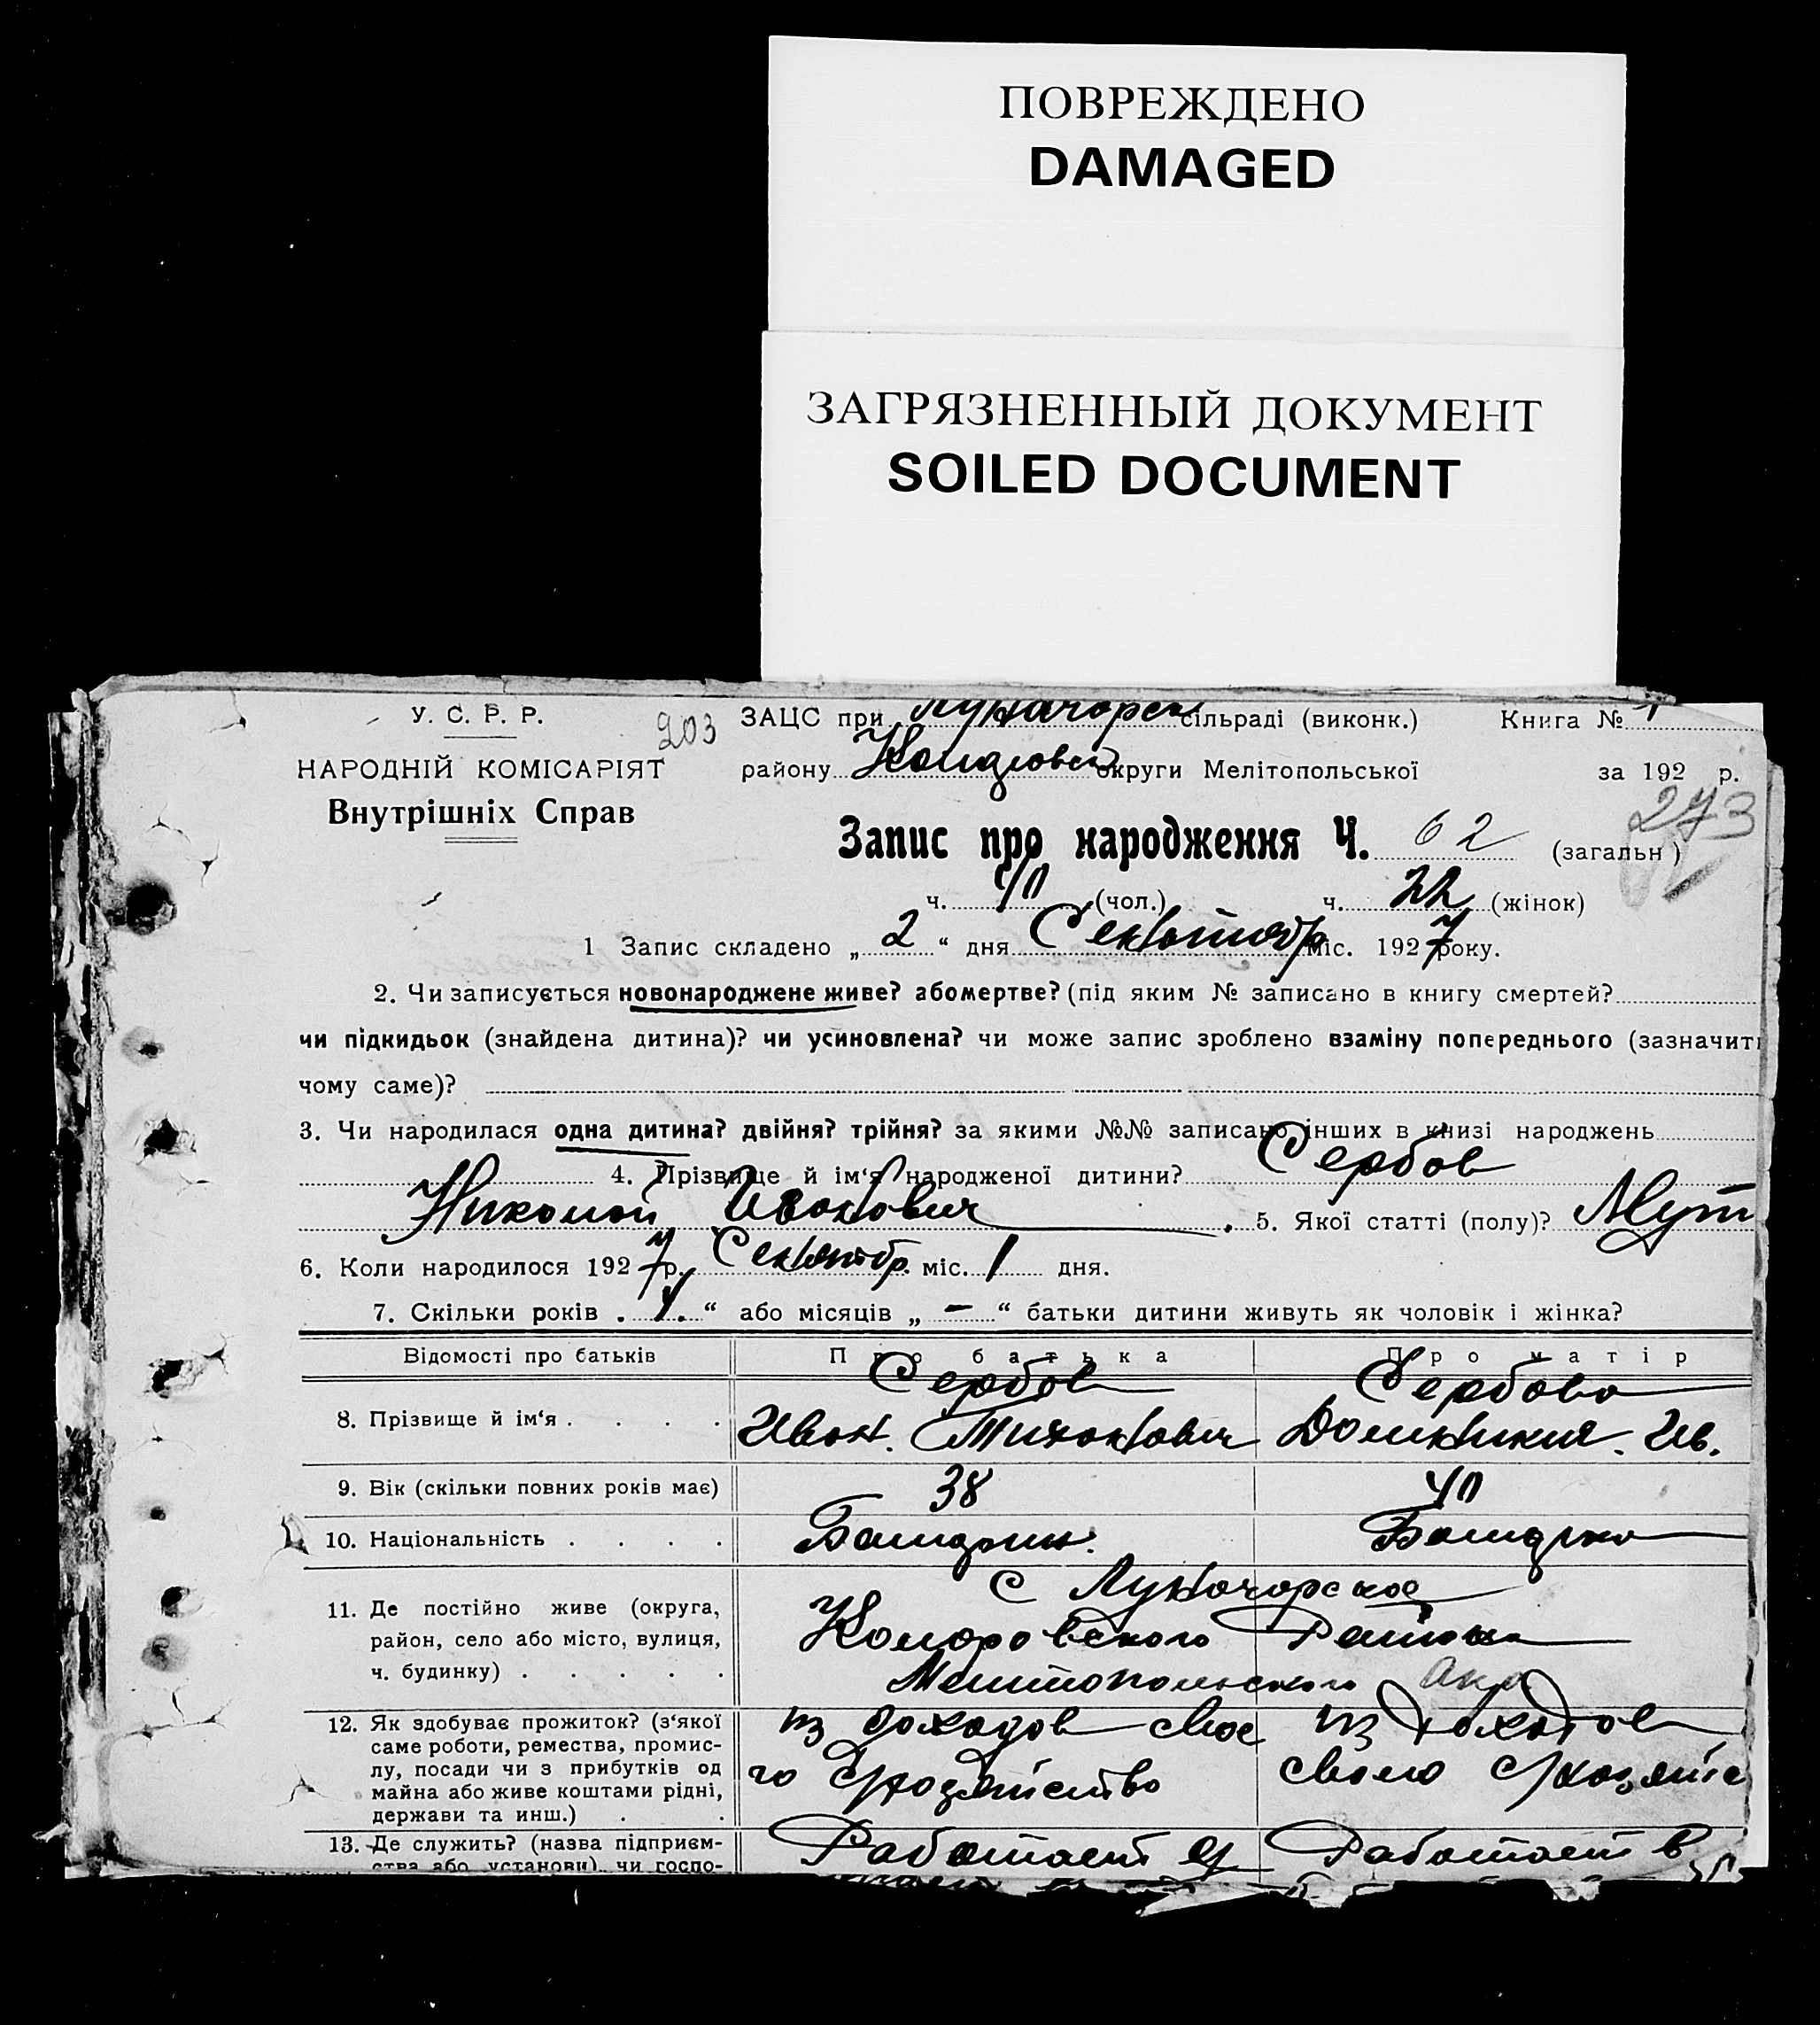 ПОВРЕЖДЕНО
DAMAGED
ЗАГРЯЗНЕННЫЙ ДОКУМЕНТ
SOILED DOCUMENT
У. С. Р. Р. 203 ЗАЦС при сільраді (виконк.) Книга № 1
НАРОДНІЙ КОМІСАРІЯТ району округи Мелітопольської за 192 р.
Внутрішніх Справ
273
Запис про народження Ч. 62 (загальн)
ч. 40 (чол.) ч. 22 (жінок)
1 Запис складено „ 2 “ дня Сентябр міс. 1927 року.
2. Чи записується новонароджене живе? або мертве? (під яким № записано в книгу смертей?
чи підкидьок (знайдена дитина)? чи усиновлена? чи може запис зроблено взаміну попереднього (зазначит
чому саме)?
3. Чи народилася одна дитина? двійня? трійня? за якими №№ записано інших в книзі народжень
4. Прізвище й ім‘я народженої дитини? Сербов
Николай Иванович 5. Якої статті (полу)? Муж
6. Коли народилося 1927 р. Сентябр. міс. 1 дня.
7. Скільки років „ “ або місяців „ — “ батьки дитини живуть як чоловік і жінка?
Відомості про батьків Про батька Про матір
Сербов Сербова
8. Прізвище й ім‘я . . . . Иван. Ив.
9. Вік (скільки повних років має) 38 40
10. Національність . . . .
11. Де постійно живе (округа,
район, село або місто, вулиця,
ч. будинку) . . . . .
с Луначарское
района
Мелитопольского окр
12. Як здобуває прожиток? (з‘якої
саме роботи, ремества, промис-
лу, посади чи з прибутків од
майна або живе коштами рідні,
держави та инш.) . .
из доходов свое
го хозяйство
из доходов
своего
13. Де служить? (назва підприєм-
ства або установи) чи госпо-
Работает Работает в